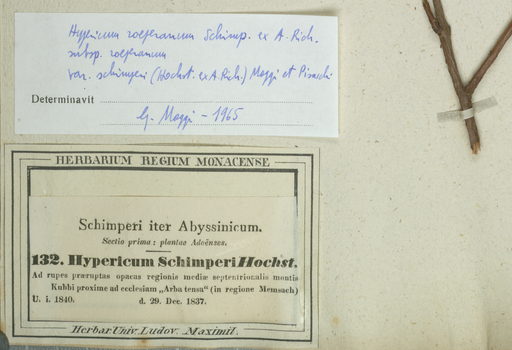 Hypericum roeperanum Schimp. ex A. Rich.
subsp. roeperanum
var. schimperi (Hochst. ex A. Rich.) Moggi et Pisacchi
Determinavit
G. Moggi - 1965
HERBARIUM REGIUM MONACENSE.
Schimperi iter Abyssinicum.
Sectio prima: plantae Adoënses.
132. Hypericum Schimperi Hochst.
Ad rupes praeruptas opacas regionis mediae septentrionalis montis
Kubbi proxime ad ecclesiam „Arba tensa“ (in regione Memsach)
U. i. 1840. d. 29. Dec. 1837.
Herbar. Univ. Ludov. Maximil.